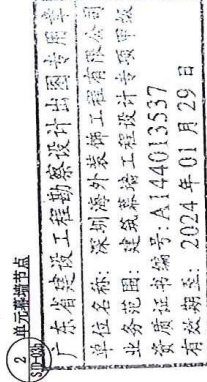 2 单元幕墙节点
广东省建设工程勘察设计出图专用章
单位名称: 深圳海外装饰工程有限公司
业务范围: 建筑幕墙工程设计专项甲级
资质证书编号: A144013537
有效期至: 2024年01月29日